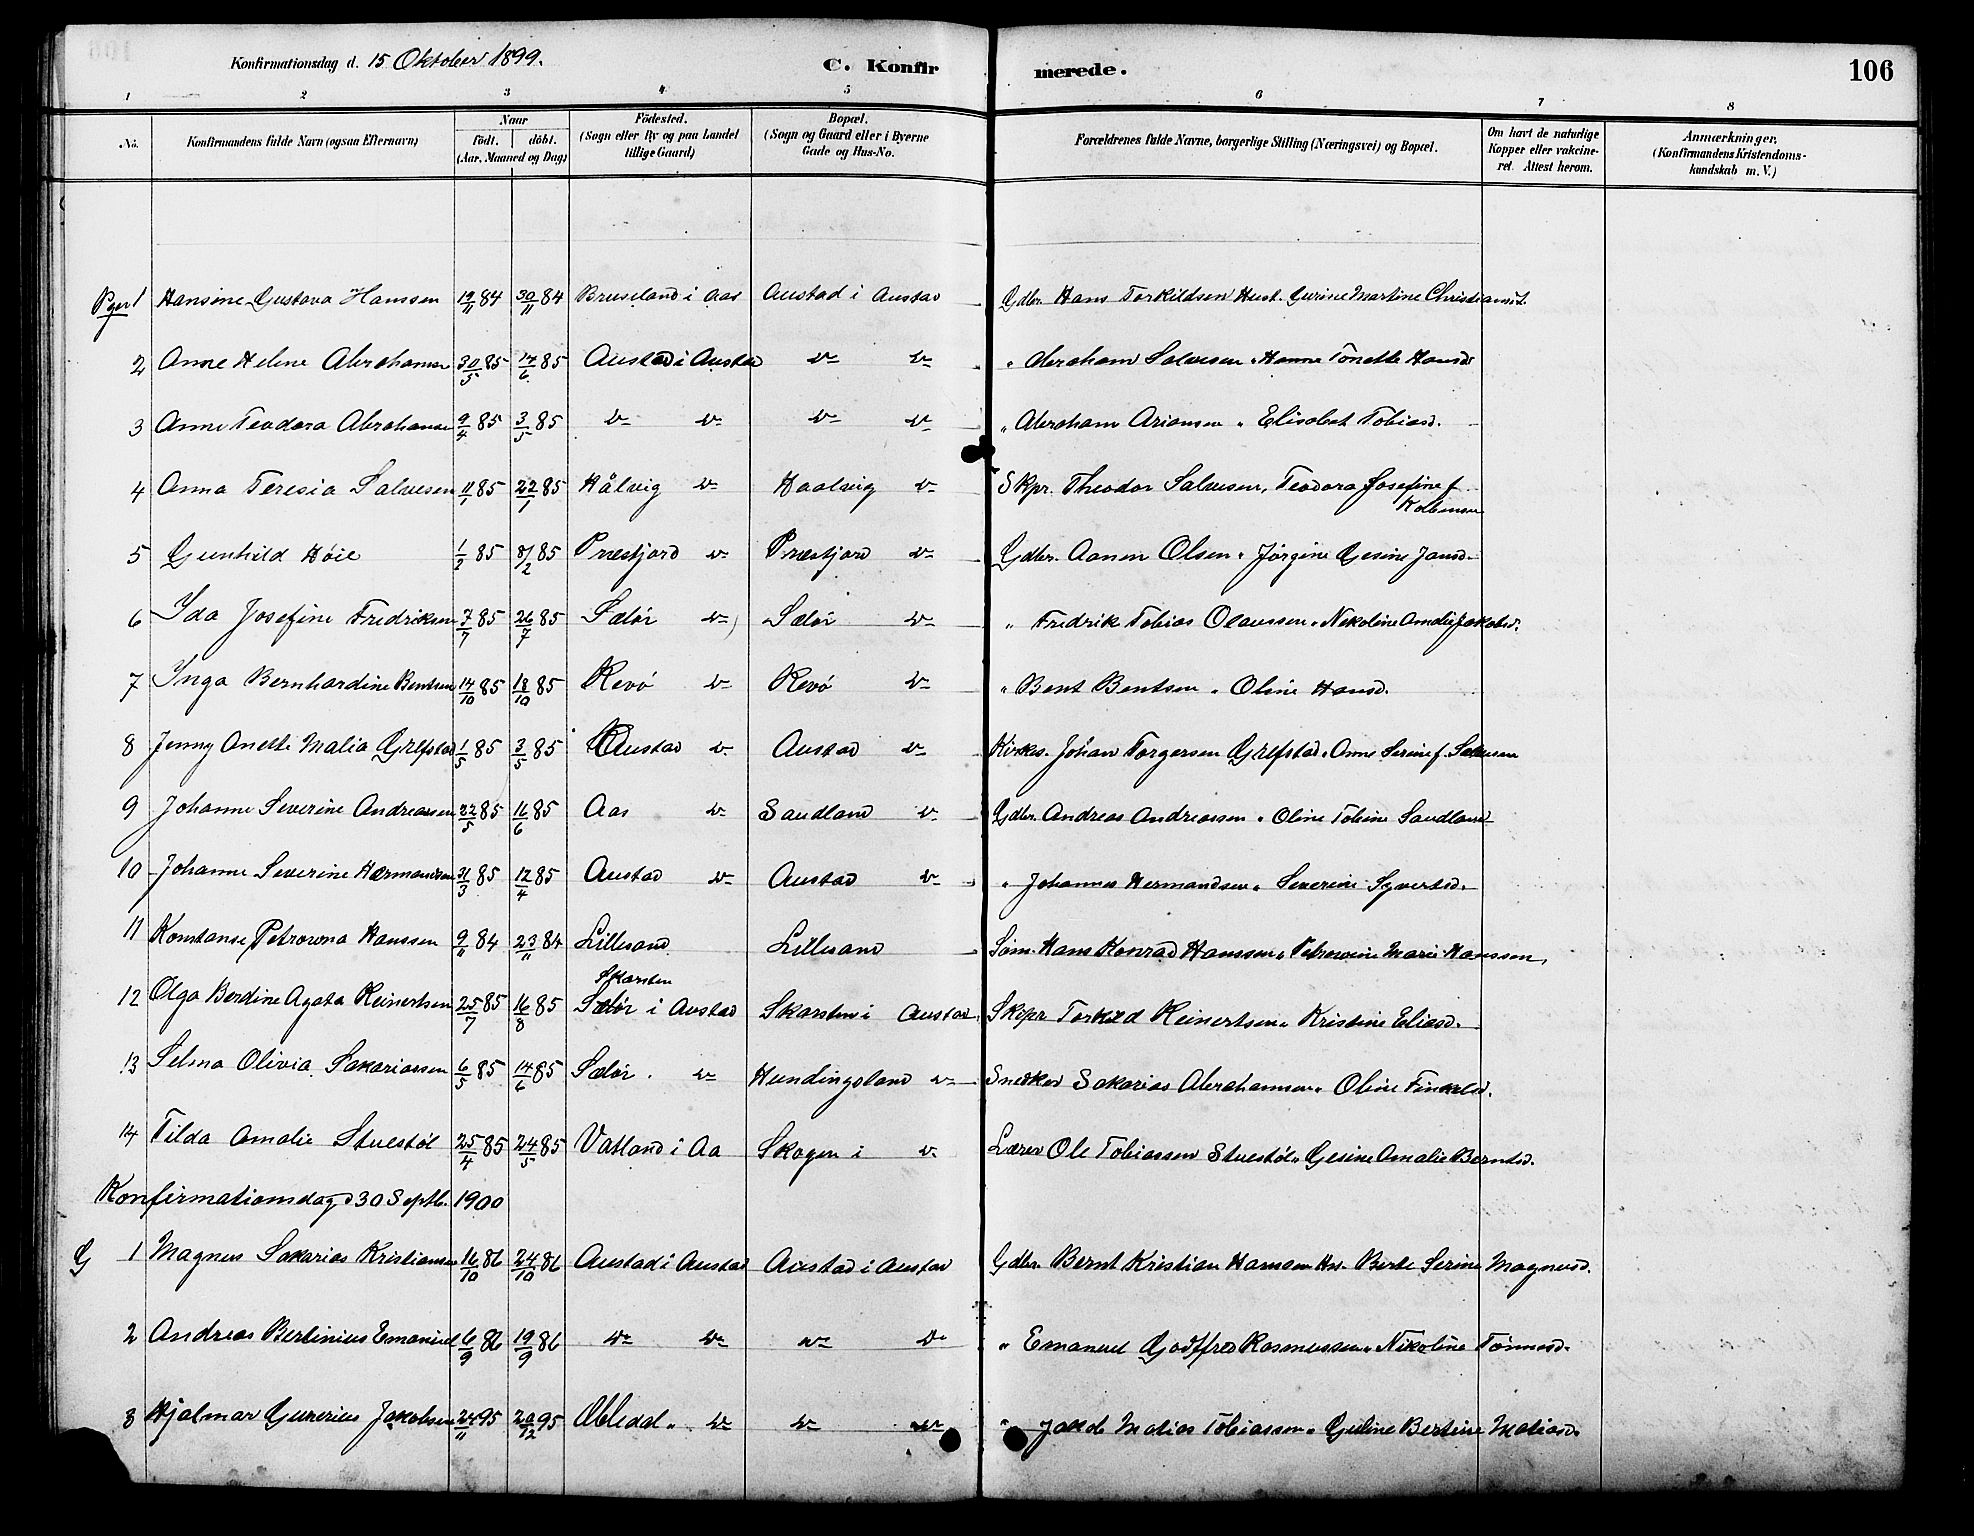 Konfirmationsdag d. 15 Oktober 1899.
C. Konfirmerede.
106
1 2 3 4 5 6 7 8
No. Konfirmandens fulde Navn (ogsaa Efternavn) Naar födt. döbt. (Aar, Maaned og Dag) Födested. (Sogn eller By og paa Landet tillige Gaard) Bopæl. (Sogn og Gaard eller i Byerne Gade og Hus-No. Forældrenes fulde Navne, borgerlige Stilling (Næringsvei) og Bopæl. Om havt de naturlige Kopper eller vakcineret. Attest herom. Anmærkninger, (Konfirmandens Kristendomskundskab m. V.)
Pger 1 Hansine Gustava Hanssen 19/11 84 30/11 84 Bruseland i Aas Austad i Austad Gdbr. Hans Torkildsen Hust. Gurine Martine Christiansd.
2 Anne Helene Abrahamsen 30/5 85 14/6 85 Austad i Austad do do " Abraham Salvesen " Hanne Tonette Hansd
3 Anne Teodora Abrahamsen 9/4 85 3/5 85 do do do do " Abraham Ariansen " Elisabet Tobiasd.
4 Anna Teresia Salvesen 11/1 85 22/1 85 Hålvig do Haalvig do Skpr. Theodor Salvesen, Teodora Josefine f. Kolbensen
5 Gunhild Høie 1/2 85 8/2 85 Præstjord do Præstjord do Gdbr. Aanen Olsen " Jørgine Gesine Jansd.
6 Ida Josefine Fredriksen 7/7 85 26/7 85 Sælør do Sælør do " Fredrik Tobias Olaussen " Nekoline Amalie Jakobsd.
7 Inga Bernhardine Bentsen 14/10 85 18/10 85 Revö do Revö do " Bent Bentsen " Oline Hansd.
8 Jenny Anette Malia Grefstad 1/5 85 3/5 85 Austad do Austad do Kirkes. Johan Torgersen Grefstad " Anne Serine f. Salvesen
9 Johanne Severine Andreassen 22/5 85 16/6 85 Aas do Sandland do Gdbr. Andreas Andreassen " Oline Tobine Sandland
10 Johanne Severine Hermandsen 21/3 85 12/4 85 Austad do Austad do " Johannes Hermandsen " Severine Syvertsd.
11 Konstanse Petrowna Hanssen 9/11 84 23/11 84 Lillesand Lillesand Søm. Hans Konrad Hanssen " Petrowine Marie Hanssen,
12 Olga Berdine Agata Reinertsen 25/7 85 16/8 85 Skarsten Sælør i Austad Skarsten i Austad Skpr Torkild Reinertsen " Kristine Eliasd.
13 Selma Olivia Sakariassen 6/5 85 14/6 85 Sælør do Hundingsland do Snedker Sakarias Abrahamsen " Oline Finkelsd.
14 Tilda Amalie Stuestøl 25/4 85 24/5 85 Vatland i Aa Skogen i do Lærer Ole Tobiassen Stuestøl " Gesine Amalie Berntsd.
Konfirmationsdag d 30 Septb. 1900
G 1 Magnus Sakarias Kristiansen 16/10 86 24/10 86 Austad i Austad Austad i Austad Gdbr. Bernt Kristian Hansen Hu. Berte Serine Magnusd.
2 Andreas Bertinius Emanuel 6/9 86 19/9 86 do do do do " Emanuel Godtfred Rasmussen " Nikoline Tønnesd.
3 Hjalmar Gunerius Jakobsen 24/11 95 20/12 95 Æbledal " do do do " Jakob Matias Tobiassen " Guline Bertine Matiasd.